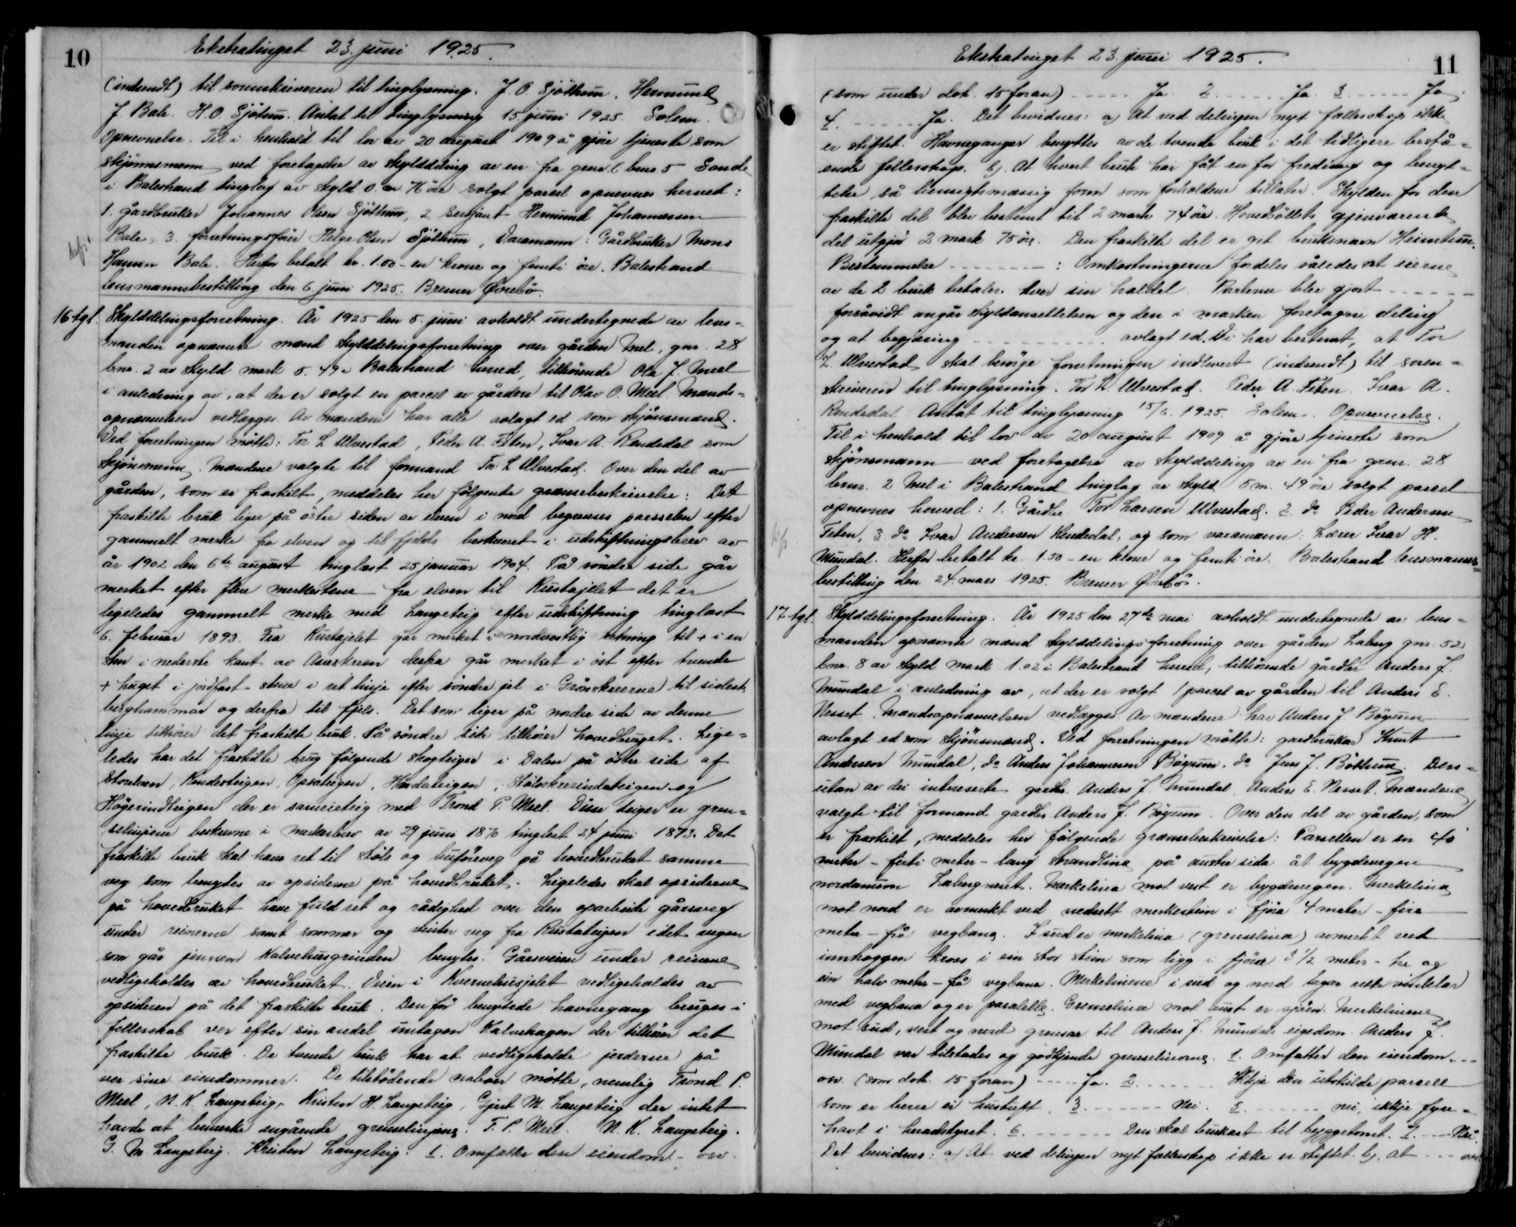 10
Ekstratinget 23. juni 1925.
(indsendt) til sorenskriveren til tinglysning. J. O. Sjöthun. Hermund
J. Bale. H. O. Sjötun. Antat til tinglysning 15 juni 1925. Solem.
Opnevnelse. Til i henhold til lov av 20 august 1909 å gjöre tjeneste som
skjönnsmenn ved foretagelse av skylddeling av en fra gnr. 6 bnr. 5 Sande
i Balestrand tinglag av skyld 0 m 76 öre solgt parsel opnevnes herved:
1. gårdbruker Johannes Olsen Sjöthun, 2. Sersjant Hermund Johannessen
Bale. 3. forretningsförer Helge Olsen Sjöthun, Varamann: Gårdbruker Mons
Hansen Bale. Herfor betalt kr. 1.50 - en krone og femti öre. Balestrand
lensmannsbestilling den 6 juni 1925. Bremer Övrebö.
16 tgl. Skylddelingsforretning. År 1925 den 5. juni avholdt undertegnede av lens-
manden opnævnte mænd skylddelingsforretning over gården Mel, gnr. 28
bnr. 2 av skyld mark 5.49 i Balestrand herred, tilhörende Ola J. Meel
i anledning av, at der er solgt en parcel av gården til Olav O. Meel. Mands-
opnævnelsen vedlægges. Av mændene har alle avlagt ed som skjönsmænd.
Ved forretningen mötte: Tor L. Ulvestad, Peder A. Feten, Ivar A. Rendedal som
skjönsmenn. Mændene valgte til formand Tor L. Ulvestad. Over den del av
gården, som er fraskilt, meddeles her følgende grænsebeskrivelse: Det
fraskilte bruk liger på östre siden av elven i nord begrenses parsselen efter
gammelt merke fra elven og til fjelds beskrevet i udskiftningsbrev av
år 1902 den 6te august tinglæst 25 januar 1904. På söndre side går
merket efter flere merkestene fra elven til Kustajölet det er
ligeledes gammelt merke med Langeteig efter udskiftning tinglæst
6. februar 1893. Fra Kustajölet går merket i nordvestlig retning til + i en
sten i nederste kant av Aasskreen derfra går merket i öst efter tvende
+ huget i jordfast stene i ret linje efter söndre jel i Grönskrerne til sidste
berghammar og derfra til fjels. Det som liger på nordre side av denne
linje tilhörer det fraskilte bruk. På söndre side tilhörer hovedbruget. Lige-
ledes har det fraskilte brug følgende skogteiger i Dalen på östre side af
Storelven, Rindesteigen, Opsateigen, Hovdateigen, Stölskrerindateigen og
Högerindteigen der er sameieteig med Trond P. Meel. Disse teiger er gren-
selinjerne beskrevne i merkesbrev av 29 juni 1870 tinglæst 24 juni 1873. Det
fraskilte bruk skal have ret til stöls og buföreveg på hovedbruket samme
veg som benyttes av opsiderne på hovedbruket. Ligeledes skal opsiderne
på hovedbruket have fuld ret og rådighed over den oparbeide gårsveg
under reinerne samt sommer og vinter veg fra Kustateigen idet vegen
som går jennem Kalvehusgrinden benyttes. Gårsveien under reinene
vedligeholdes av hovedbruket. Veien i Kvernhusjölet vedligeholdes av
opsideren på det fraskilte bruk. Den før benyttede havnegang bruges i
fellesskab ver efter sin andel undtagen Kalvehagen der tilhörer det
fraskilte bruk. De tvende bruk har at vedligeholde jerderne på
ver sine eiendommer. De tilstötende naboer mötte, nemlig Trond P.
Meel, N. K. Langeteig, Kristen H. Langeteig, Gjert M. Langeteig der intet
havde at bemerke angående grenselinjene. T. P. Meel. N. K. Langeteig.
G. M. Langeteig. Kristen Langeteig. 1. Omfatter den eiendom - osv.
11
Ekstratinget 23. juni 1925.
(som under dok. 15 foran) ..... Ja 2 ..... Ja. 3 ..... Ja.
4. ..... Ja. Det bevidnes: a) At ved delingen nyt fællesskap ikke
er stiftet. Havneganger benyttes av de tvende bruk i det tidligere bestå-
ende fellesskap. b) At hvert bruk har fåt en for fredning og benyt-
telse så hensigtsmæssig form som forholdene tillater. Skylden for den
fraskilte del blev bestemt til 2 mark 74 öre. Hovedbölets gjenværende
del utgjør 2 mark 75 öre. Den fraskilte del er git bruksnavn Heimtun.
Bestemmelse .....: Omkostningerne fordeles således at eierne
av de 2 bruk betaler hver sin haldel. Partene blev gjort .....
forsåvidt angår skyldansættelsen og den i marken foretagne deling
og at begjæring ..... avlagt ed. Vi har bestemt, at Tor
L. Ulvestad skal besörge forretningen indleveret (indsendt) til soren-
skriveren til tinglysning. Tor L. Ulvestad. Peder A. Feten. Ivar A.
Rendedal. Antat til tinglysning 15/6. 1925. Solem. Opnevnelse.
Til i henhold til lov av 20 august 1909 å gjöre tjeneste som
skjönsmenn ved foretagelse av skylddeling av en fra gnr. 28
bnr. 2 Mel i Balestrand tinglag av skyld 5 m. 49 öre solgt parsel
opnevnes herved: 1. Gårdbr. Tor Larsen Ulvestad. 2. do Peder Andersen
Feten, 3. do Ivar Andersen Rendedal, og som varamann: Lærer Ivar H.
Mundal. Herfor betalt kr. 1.50 - en krone og femti öre. Balestrand lensmanns-
bestilling den 24. mars 1925. Bremer Övrebö.
17 tgl. Skylddelingsforretning. År 1925 den 27de mai avholdt undertegnede av lens-
manden opnævnte mænd skylddelingsforretning over gården Laberg gnr. 52
bnr. 8 av skyld mark 1.02 i Balestrand herred, tilhörende gårdbr. Anders J.
Mundal i anledning av, at der er solgt 1 parcel av gården til Anders E.
Nesset. Mandsopnævnelsen vedlægges. Av mændene har Anders J. Böyum
avlagt ed som skjönsmænd. Ved forretningen mötte: gardbrukar Knut
Andersen Mundal, do Anders Johannesen Böyum. do Jens J. Böthun. Dess-
utan av dei interesserte gardbr. Anders J. Mundal, Anders E. Nesset. Mændene
valgte til formand gardbr. Anders J. Böyum. Over den del av gården, som
er fraskilt, meddeles her følgende grænsebeskrivelse: Parsellen er en 40
meter - firti meter - lang strandlina på austre sida åt bygdevegen
nordanum Labergneset. Merkelina mot vest er bygdevegen. Merkelina
mot nord er avmerkt ved nedsett merkestein i fjöra 4 meter - fire
meter - frå vegbana. I sud er merkelina (grenselina) avmerkt ved
innhoggen kross i ein stor stein som ligg i fjöra 3 1/2 meter - tre og
ein halv meter - frå vegbana. Merkelinene i sud og nord ligger rette vinkelar
med vegbana og er paralelle. Grenselina mot aust er sjöen. Merkelinene
mot sud, vest og nord grensar til Anders J. Mundals eigedom. Anders J.
Mundal var tilstades og godkjende grenselinorne. 1. Omfatter den eiendom ---
osv. (som dok. 15 foran) ----- Ja. 2 ..... Ikkje den utskilde parsell
som er berre ei hustuft. 3 ..... Nei. 5. ..... nei, ikkje fyre-
havt i heradstyret. 6. ..... Den skal brukast til byggetomt. 7. --- Nei.
Det bevidnes: a) At ved delingen nyt fællesskap ikke er stiftet. b). at --- osv.